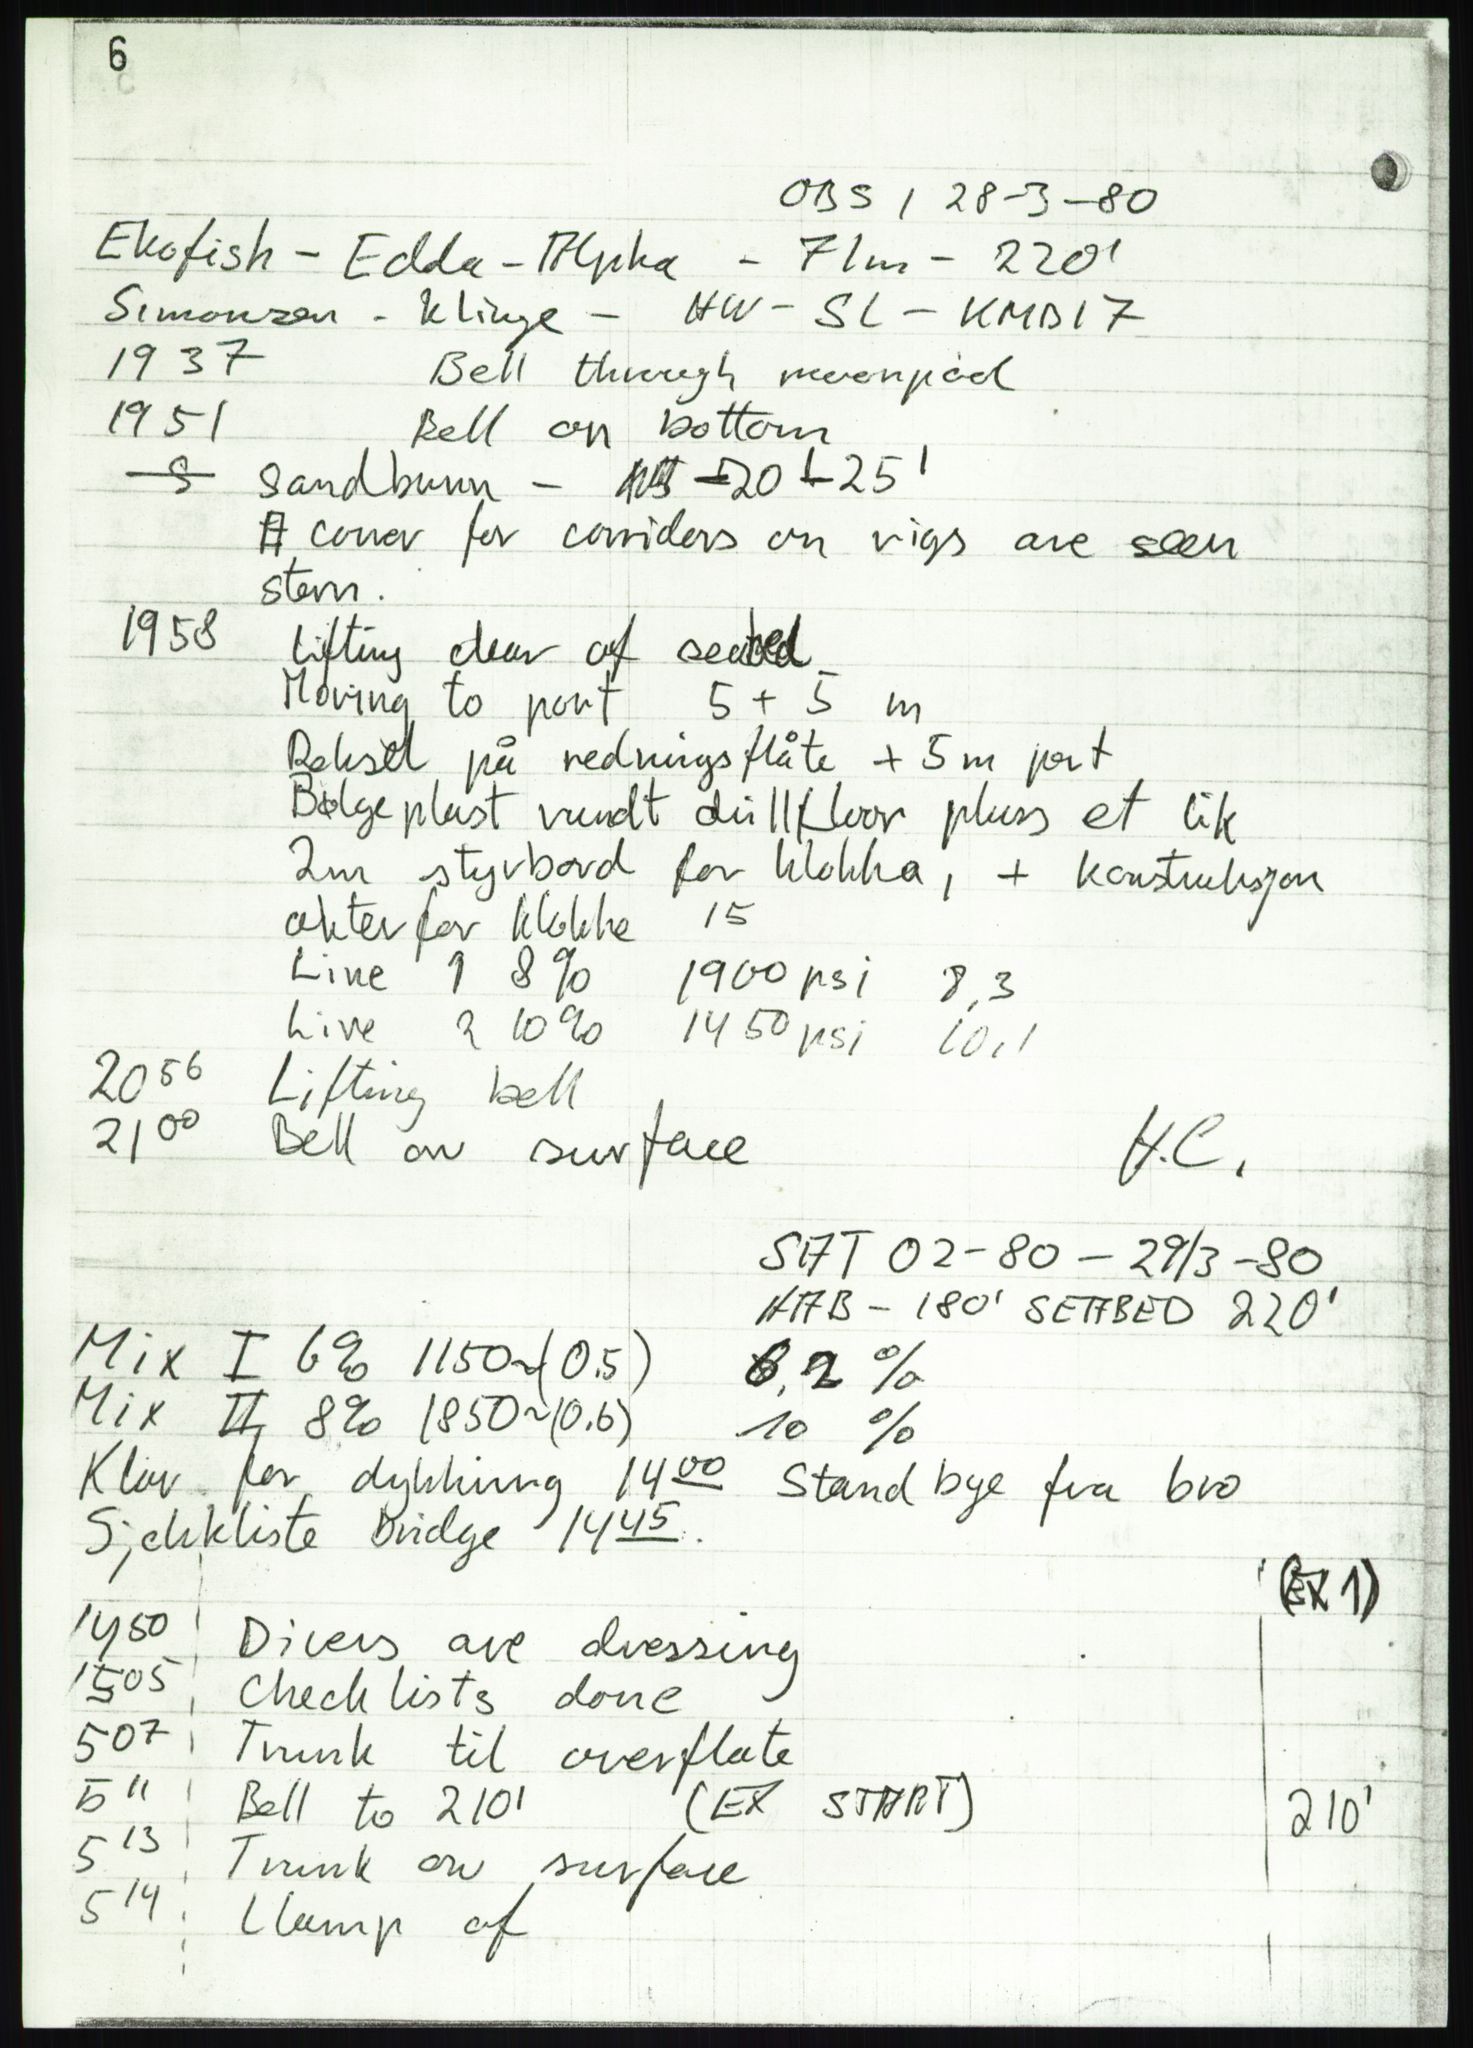 6
OBS 1 28-3-80
Ekofish - Edda - Alpha - 71m - 220'
Simonsen - Klinge - HW - SL - KMB17
1937 Bell through moonpool
1951 Bell on bottom
sandbunn - 20 - 25'
cover for corridors on rigs are seen
stern.
1958 Lifting clear of seabed
Moving to port 5 + 5 m
Deksel på redningsflåte + 5m port
Bølgeplast rundt drillfloor pluss et lik
2m styrbord for klokka, + konstruksjon
akterfor klokke 15
Line 1 8% 1900 psi 8,3
Line 2 10% 1450 psi 10,1
2056 Lifting bell
2100 Bell on surface H.C.
SAT 02-80 - 29/3-80
HAB - 180' SEABED 220'
Mix I 6% 1150~(0.5) 6,2 %
Mix II 8% 1850~(0.6) 10 %
Klar for dykking 1400 Stand bye fra bro
Sjekkliste Bridge 1445.
(EX 1)
1450 Divers are dressing
1505 Checklists done
507 Trunk til overflate
511 Bell to 210' (EX START) 210'
513 Trunk on surface
514 Clamp of